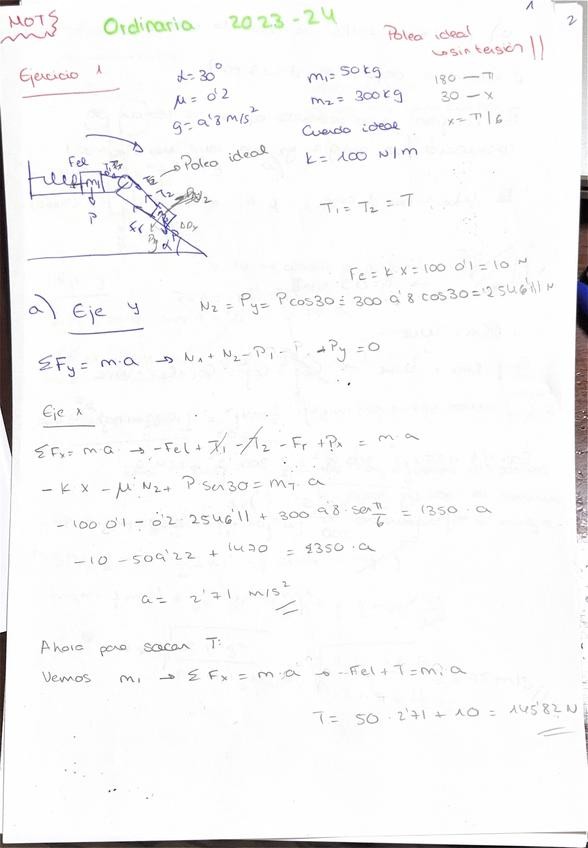 MOTS
Ordinaria 2023-24
1
2
Polea ideal
sin tensión
Ejercicio 1
α = 30°
μ = 0'2
g = 9'8 m/s²
m₁ = 50 kg
m₂ = 300 kg
Cuerda ideal
K = 100 N/m
180 — π
30 — x
x = π/6
Fel
m₁
P
Polea ideal
T₂
Fr
Py
α
T₁ = T₂ = T
Fe = K x = 100 0'1 = 10 N
a) Eje y
N₂ = Py = P cos30 = 300 9'8 cos30 = 2546'11 N
ΣFy = m·a → N₁ + N₂ - P₁ - P. + Py = 0
Eje x
ΣFx = m·a → -Fel + T₁ - T₂ - Fr + Px = m·a
-K x - μ N₂ + P sen30 = m_T a
-100 0'1 - 0'2 · 2546'11 + 300 9'8 · sen π/6 = 1350 · a
-10 - 509'22 + 1470 = 1350 · a
a = 2'71 m/s²
Ahora para sacar T:
Vemos m₁ → ΣFx = m·a → -Fel + T = m₁ a
T = 50 · 2'71 + 10 = 145'82 N